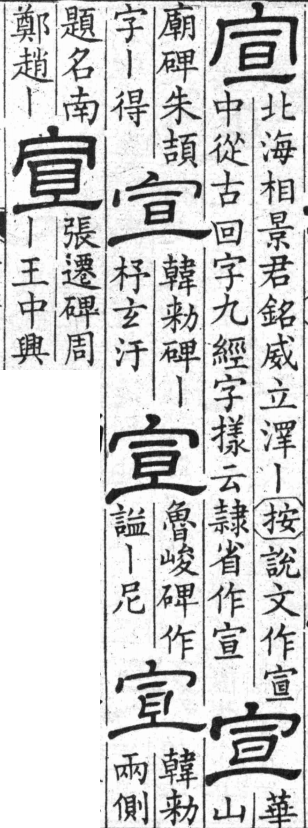 宣
北海相景君銘威立澤丨按說文作宣
中從古回字九經字樣云隸省作宣
宣
華
山
廟碑朱頡
字丨得
宣
韓勑碑丨
杅玄汙
宣
魯峻碑作
謚丨尼
宣
韓勑
兩側
題名南
鄭趙丨
宣
張遷碑周
丨王中興